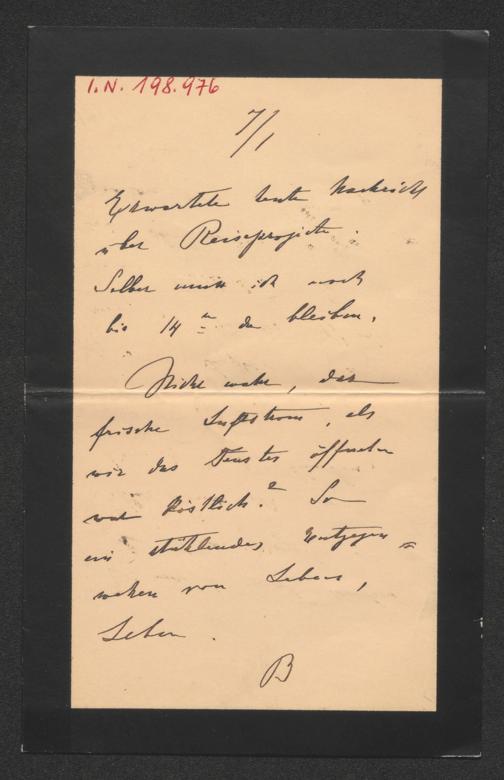 I.N. 198.976
7/1
Erwartete heute Nachricht
über Reiseprojekte.
Selber muss ich noch
bis 14n da bleiben.
Nicht wahr, der
frische Luftstrom, als
wir das Fenster öffneten
war köstlich? So
ein stählendes Entgegen=
wehen von Leben,
Leben.
B